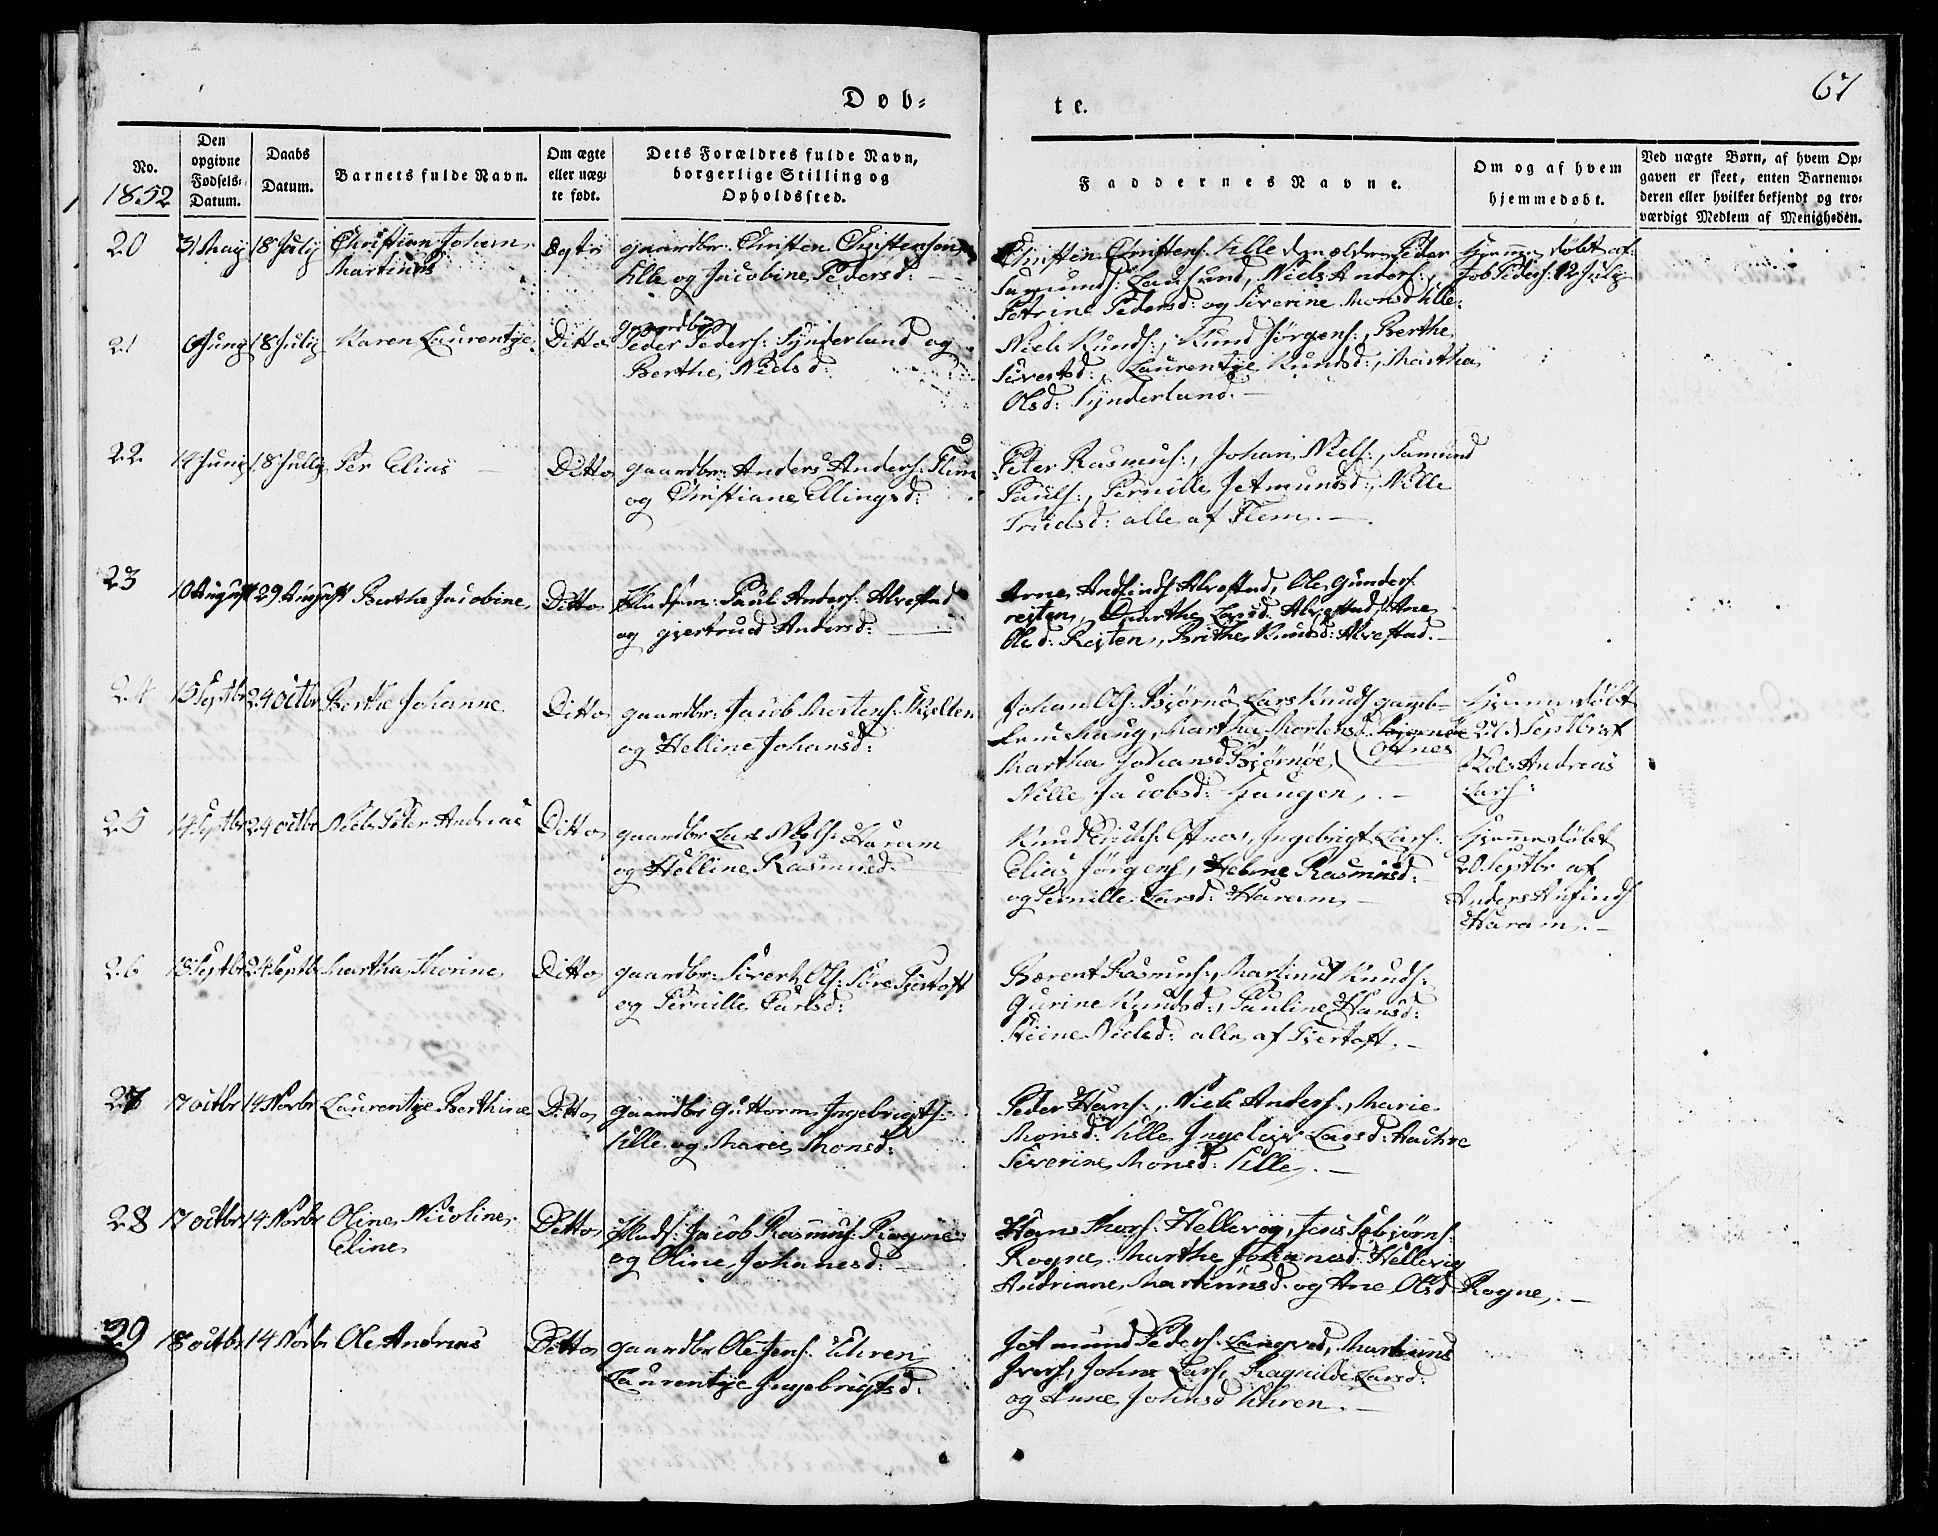 Døb=
te.
67
No.
1852
Den
opgivne
Fødsels=
Datum.
Daabs
Datum.
Barnets fulde Navn.
Om ægte
eller uæg=
te født.
Dets Forældres fulde Navn,
borgerlige Stilling og
Opholdssted.
Faddernes Navne.
Om og af hvem
hjemmedøbt.
Ved uægte Børn, af hvem Op=
gaven er skeet, enten Barnemo=
deren eller hvilket bekjendt og tro=
værdigt Medlem af Menigheden.
20 31 Maij 18 Julij Christian Johan Egte gaardbr: Christen Christensen
Martinus
Ulle og Jacobine Pedersd:
Christen Christens: Ulle d. ældre Peder
Samunds: , Niels Anders:,
Petrine Pedersd: og Siverine Monsd Ulle.
Hjemme døbt af
Job Peders: 12 Julij
21 6 Junij 18 Julij Karen Laurentze Ditto
gaardbr
Peder Peders: Synderland og
Berthe Nielsd:
Niels Knuds:, Knud Jørgens:, Berthe
Sivertsd:, Laurentze Knudsd:, Martha
Olsd: Synderland. —
22 14 Junij 18 Julij Per Elias — Ditto gaardbr: Anders Anders: Flem
og Christiane Ellingsd:
Peter Rasmus:, Johan Niels:, Samund
Pauls:, Pernille Jetmundsd:, Nille
Truelsd: alle af Flem. —
23 10 August 29 August Berthe Jacobine Ditto Huusm: Paul Anders: Alvestad
og gjertrud Andersd: —
Arne Andfinds Alvestad, Ole Gunders:
rejten, Marthe Larsd: Alvestad, Ane
Olsd: Rejten, Brithe Knudsd: Alvestad. —
24 15 Septbr 24 octbr Berthe Johanne Ditto gaardbr: Jacob Mortens: Skjelten
og Helline Johansd:
Johan Ols: Bjørnø Lars Knuds gamb-
lemshaug, Martha Mortensd.
Ofnes
Martha Johansd Bjørnøe,
Nille Jacobsd: Haugen, . —
Hjemmedøbt
21 Septbr af
Andreas
Lars:
25 14 Septbr 24 octbr Niels Peter Andreas Ditto gaardbr Lars Niels: Haram
og Helline Rasmusd. —
Knud Ofnes, Ingebrigt Lars:
Elias Jørgens, Helene Rasmusd:
og Pernille Larsd: Haram, —
Hjemmedøbt
20 Septbr af
Anders Anfinds
Haram. —
26 13 Septbr 24 Septbr Martha Thorine Ditto gaardbr: Sivert Ols: Søre Fjørtoft
og Pernille Paulsd:
Berent Rasmus:, Martinus Knuds:
Gurine Knudsd:, Pauline Hansd:
Stine Nielsd: alle af Fjertoft. —
27 17 octbr 14 Novbr Laurentze Berthine Ditto gaardbr Guttorm Ingebrigts:
Ulle og Marie Monsd:
Peder Hans:, Niels Anders:, Marie
Monsd: Ulle Larsd:
Siverine Monsd: Ulle. —
28 17 octbr 14 Novbr Oline Nicoline
Eline
Ditto Huusm: Jacob Rasmus: Rogne
og Oline Johanesd: —
Hans Thors: Hellevig, Jens
Rogne, Marthe Johanesd: Hellevig
Andriane Martinusd. og Ane Olsd Rogne, . —
29 18 octbr 14 Novbr Ole Andreas Ditto gaardbr Ole Jens: Uhren
Laurentze Ingebrigtsd:
Jetmund Peders: Longved, Martinus
Ivers, Johan Lars, Ragnilde Larsd:
og Anne Johnsd Uhren. —